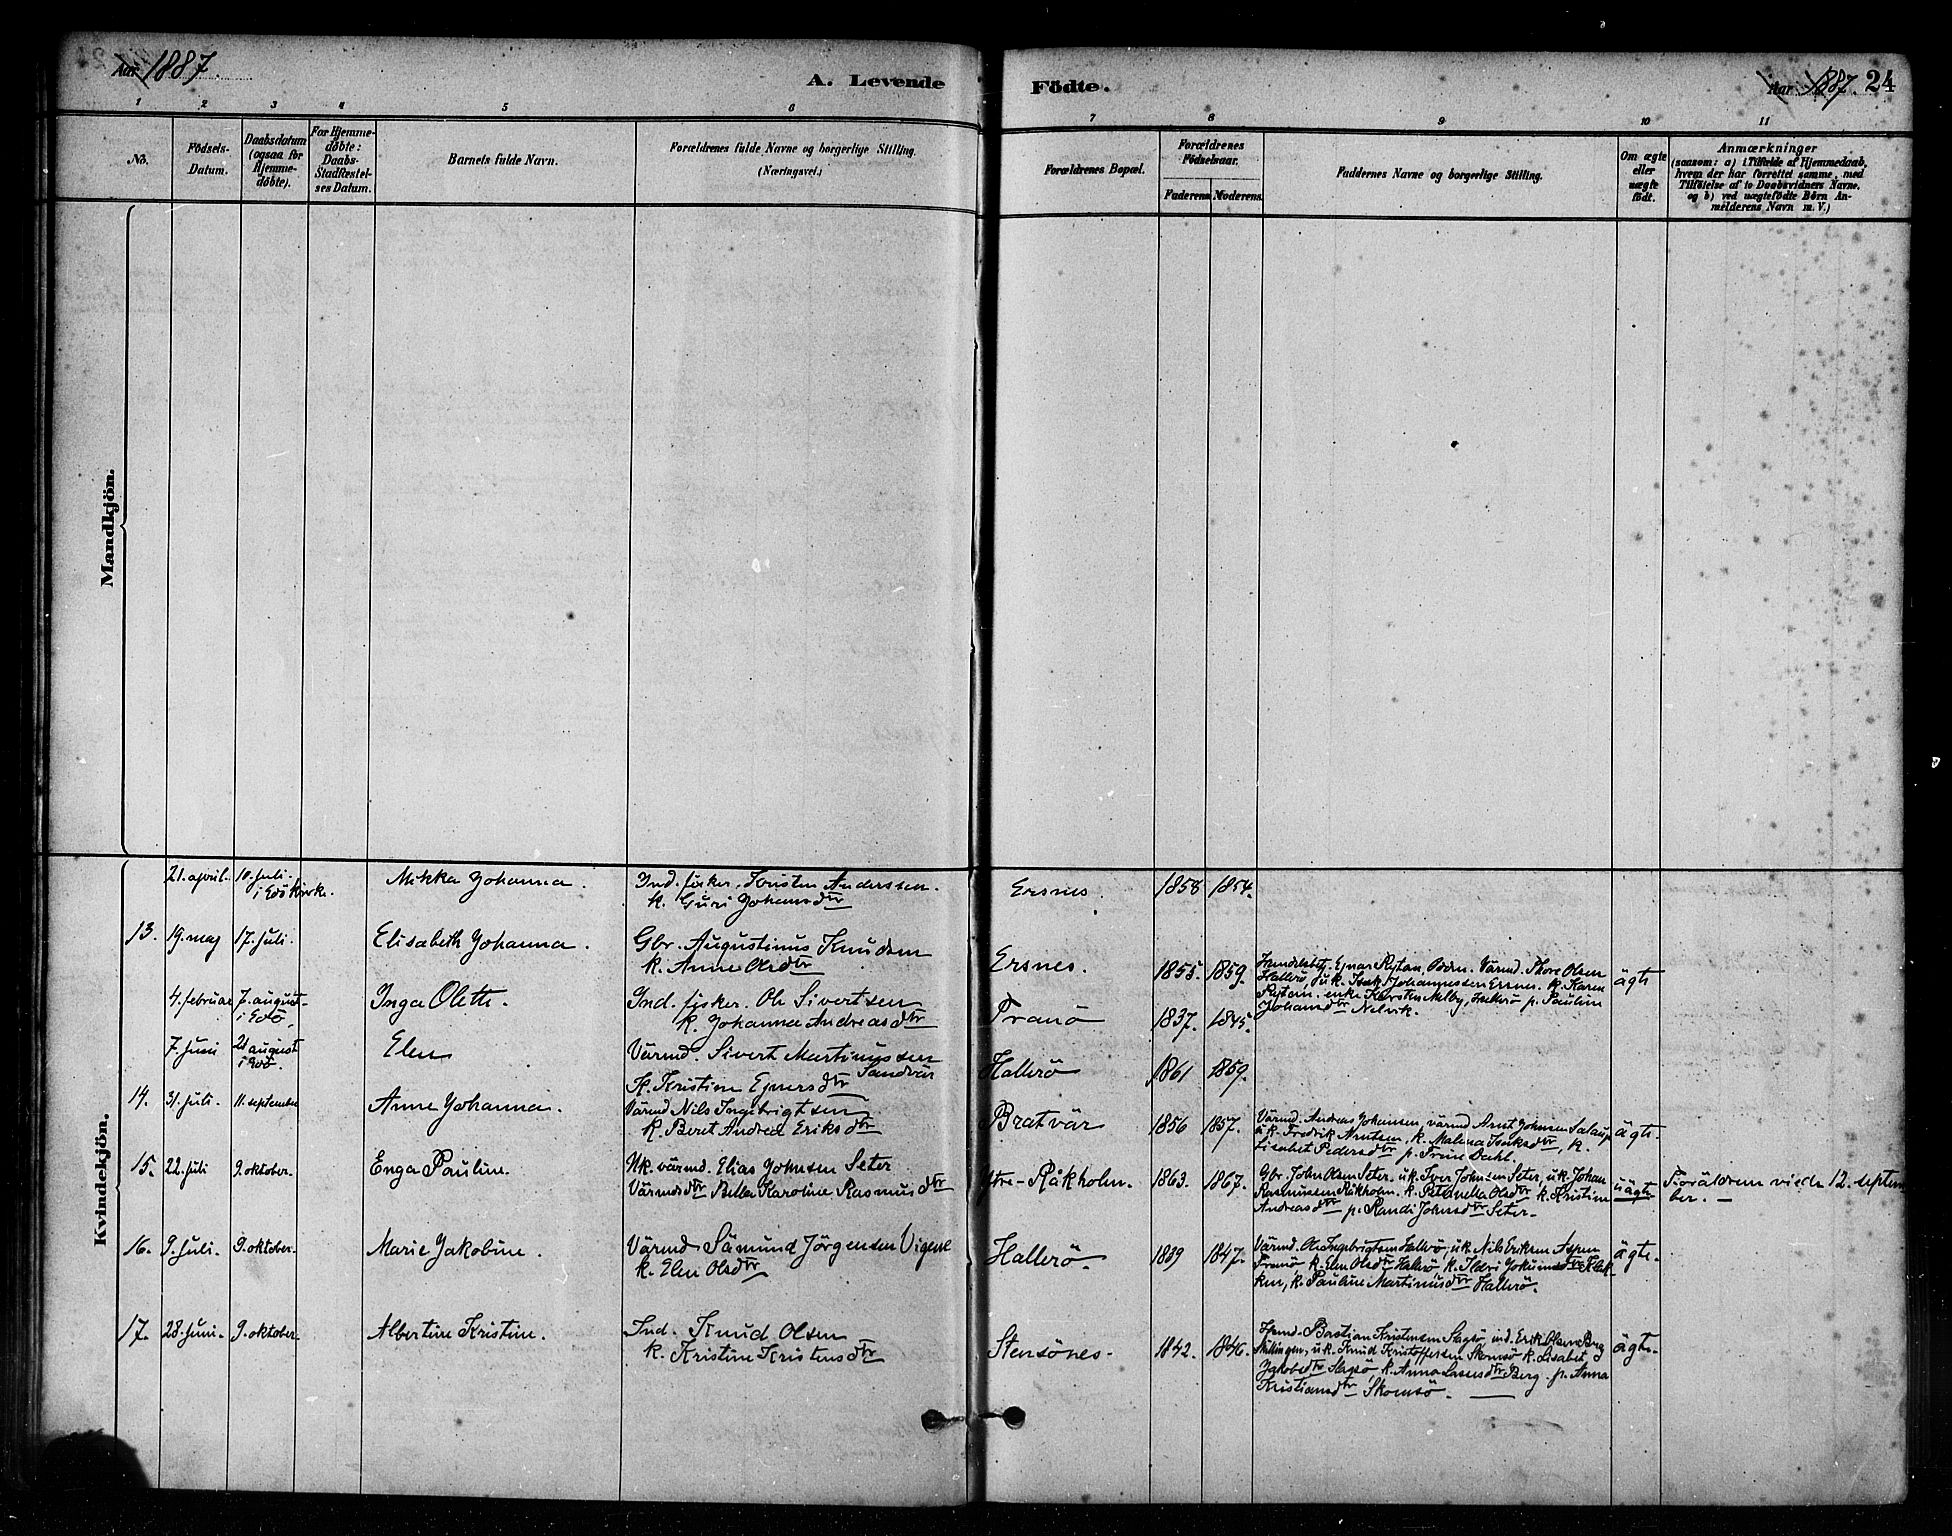 Aar 1887.
A. Levende
Födte.
Aar 1887. 24
1 2 3 4 5 6 7 8 9 10 11
No.
Födsels-
Datum.
Daabsdatum
(ogsaa for
Hjemme-
döbte).
For Hjemme-
döbte:
Daabs-
Stadfæstel-
ses Datum.
Barnets fulde Navn.
Forældrenes fulde Navne og borgerlige Stilling.
(Næringsvei.)
Forældrenes Bopæl.
Forældrenes
Födselsaar.
Faderens. Moderens.
Faddernes Navne og borgerlige Stilling.
Om ægte
eller
uægte
födt.
Anmærkninger
(saasom: a) i Tilfælde af Hjemmedaab,
hvem der har forrettet samme, med
Tilföielse af to Daabsvidners Navne,
og b) ved uægtefödte Börn An-
melderens Navn m. V.)
Mandkjön.
Kvindekjön.
21. april. 10. juli.
i Edö kirke.
Mikka Johanna.
Ind. fisker. Kristen Anderssen.
k. Guri Johansdtr
Ersnes. 1858 1854.
13. 19. maj 17. juli.
Elisabeth Johanna.
Gbr. Augustinus Knudsen
k. Anne Olsdtr
Ersnes. 1855. 1859.
Handelsbet. Ejnar Rytan, Värmd. Thore Olsen
Hallerö, u.k. Isak Johannessen Ersnes. k. Karen
Rytan. enke Karsten Melby, Hallerö p. Pauline
Johansdtr Nelvik.
ägte
4. februar 7. august
i Edö.
Inga Olette.
Ind. fisker. Ole Sivertsen
k. Johanna Andreasdtr
Tranö 1837. 1845.
7. juni 21 august
i Edö.
Elen
Värmd. Sivert Martinussen
Sandvär
k. Kristine Ejnersdtr
Hallerö 1861 1859.
14. 31. juli. 11. september
Anne Johanna.
Värmd Nils Ingebrigtsen
k. Beret Andrea Eriksdtr
Bratvär 1856 1857.
Värmd. Andreas Johansen, värmd Arnt Johansen
u.k. Fredrik Arntsen, k. Malena Isaksdtr, k.
Lisabet Pedersdtr p. Trine Dahl.
ägte.
15. 22. juli 9. oktober.
Enga Pauline.
Uk. värmd. Elias Johnsen Seter
Värmdsdtr Bella Karoline Rasmusdtr
Ytre-Råkholm. 1863. 1867.
Gbr. John Olsen Seter. u.k. Iver Johnsen Seter, u.k. Johan
Rasmussen Råkholm. k. Petanella Olsdtr k. Kristine
Andreasdtr p. Randi Johnsdtr Seter.
uägte
Foräldrene viede 12. septem
ber. –
16. 9. juli. 9. oktober.
Marie Jakobine.
Värmd Sämund Jörgensen Vigene
k. Elen Olsdtr
Hallerö. 1839 1847.
Värmd. Ole Ingebrigtsen Hallerö, u.k. Nils Eriksen Aspen
Tranö k. Elen Olsdtr Hallerö k. Ildri Jokumsdtr Klak-
ken, k. Pauline Martinusdtr Hallerö.
ägte.
17. 28. juni. 9. oktober.
Albertine Kristine.
Ind. Knud Olsen
k. Kristine Kristensdtr
Stensönes. 1842. 1846.
Bastian Kristensen Slagsö, ind. Erik Olsen Berg
u.k. Knud Kristoffersen Skomsö k. Lisabet
Jakobsdtr Slagsö, k. Anna Larsdtr Berg. p. Anna
Kristiansdtr Skomsö.
ägte.